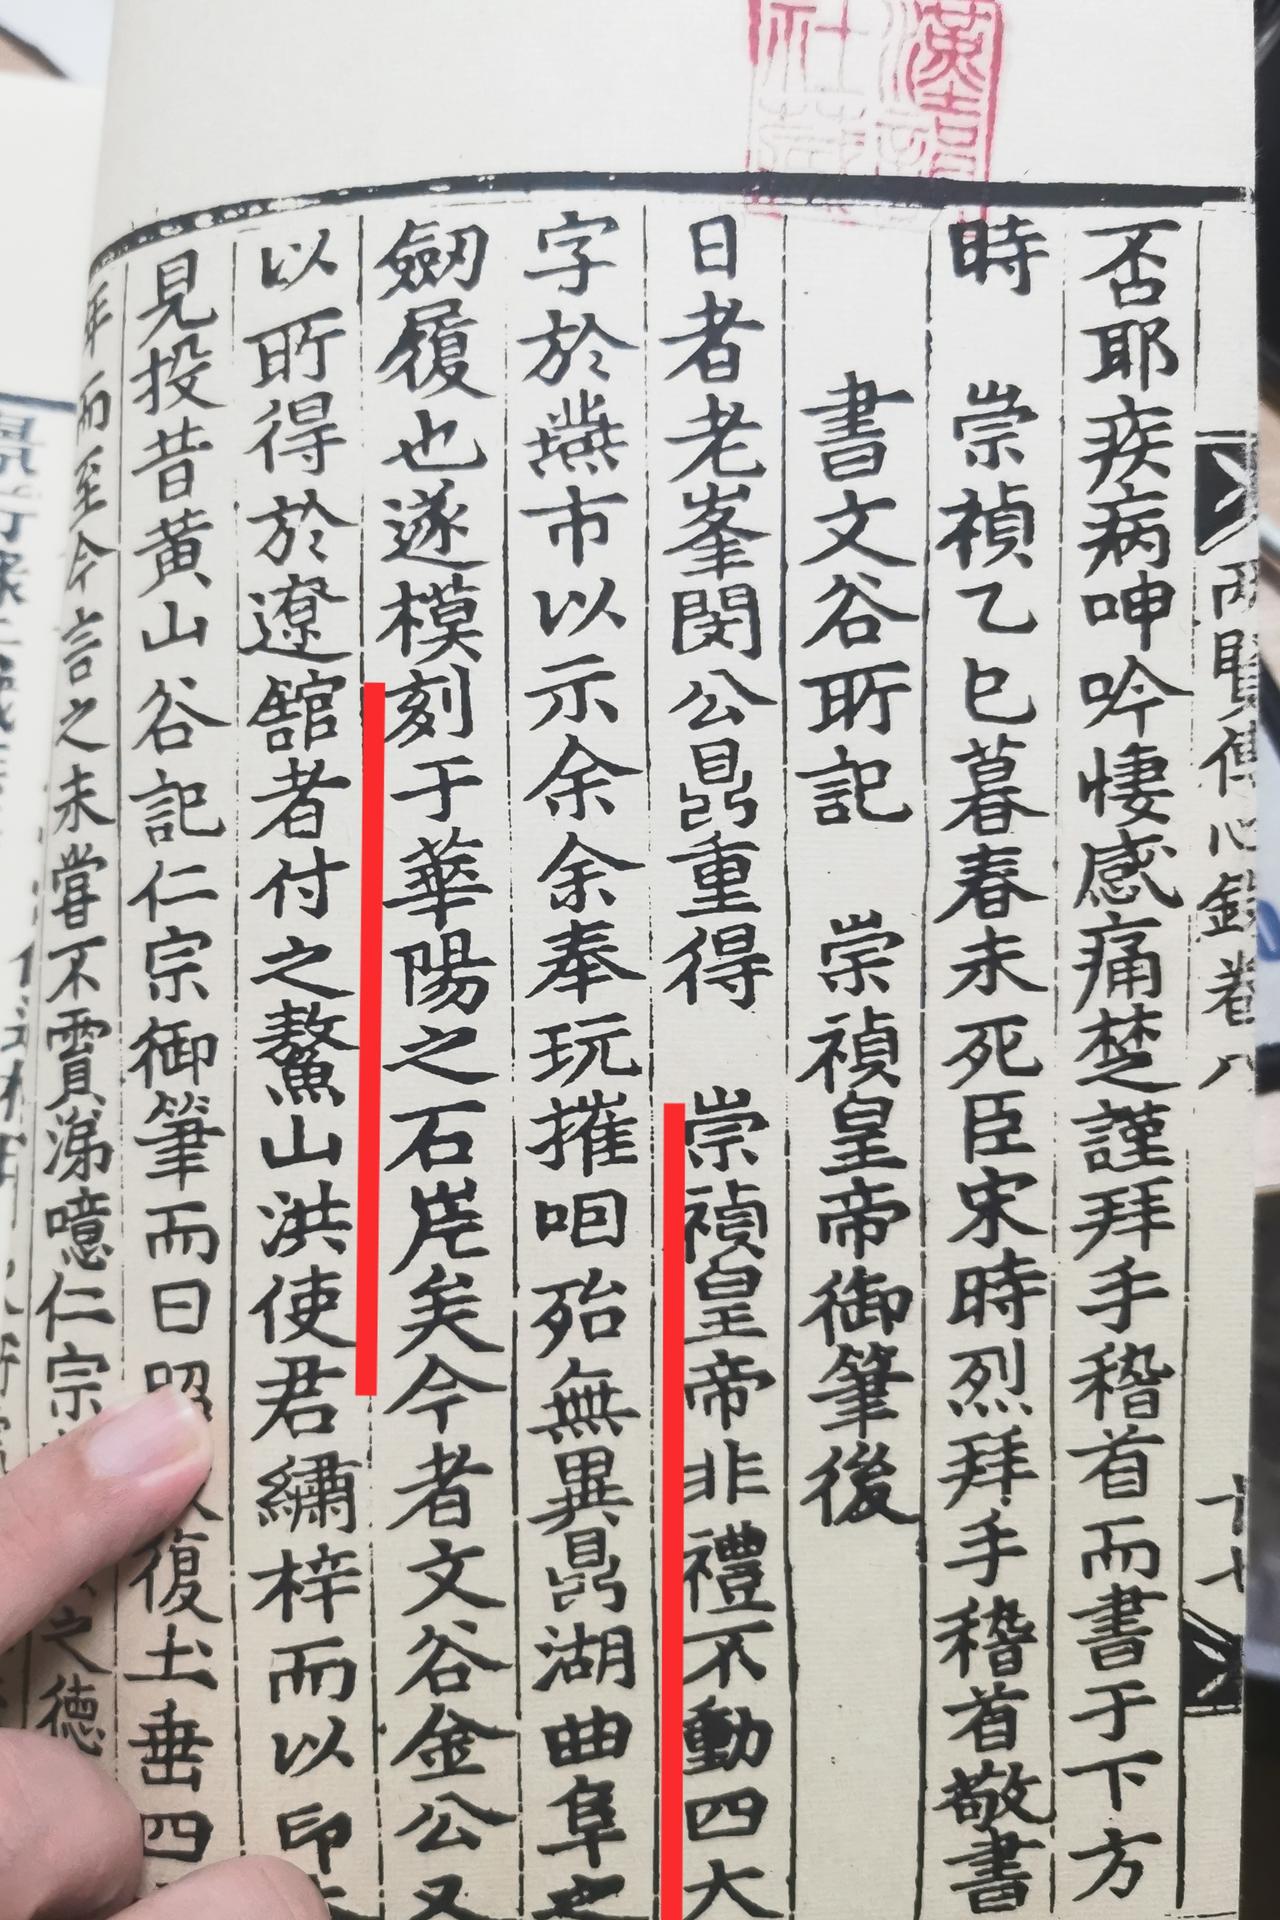 兩賢傳心錄卷八
否耶疾病呻吟悽感痛楚謹拜手稽首而書于下方
時 崇禎乙巳暮春未死臣宋時烈拜手稽首敬書
書文谷所記 崇禎皇帝御筆後
日者老峯閔公鼎重得 崇禎皇帝非禮不動四大
字於燕市以示余余奉玩摧咽殆無異鼎湖曲阜之
劒履也遂模刻于華陽之石崖矣今者文谷金公又
以所得於遼館者付之鰲山洪使君繡梓而以印
見投昔黃山谷記仁宗御筆而曰 復土垂四
年而至今言之未嘗不賈涕噫仁宗 之德